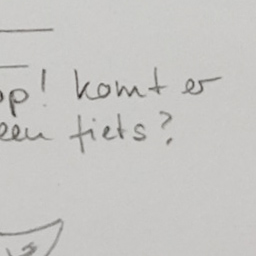 op! komt er
een fiets?